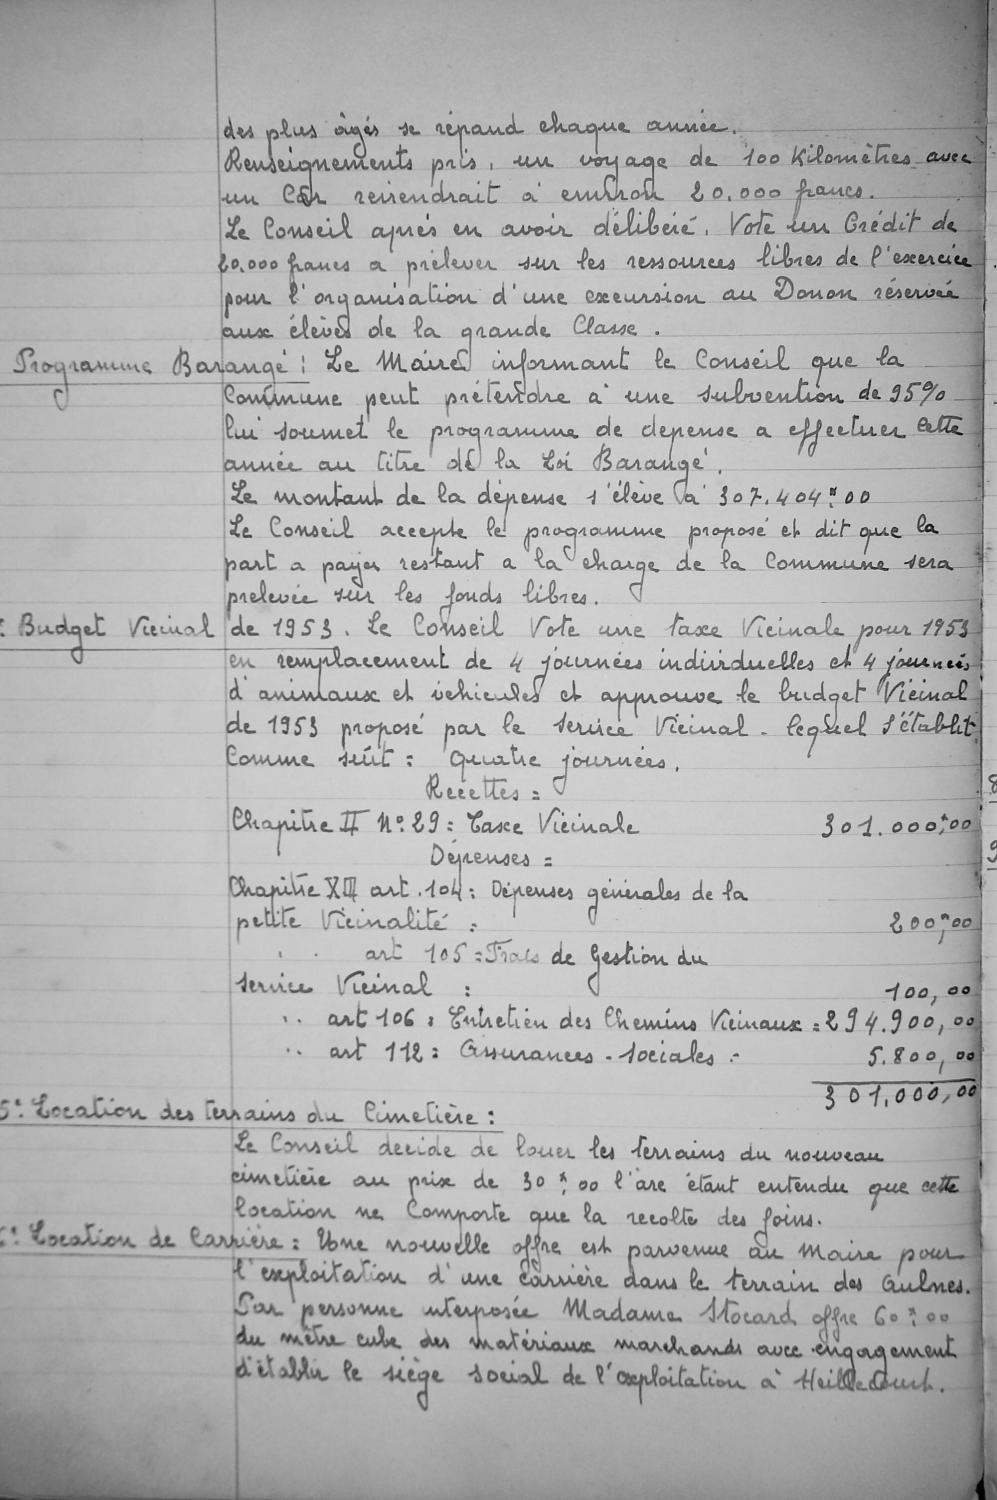 des plus âgés se répand chaque année.
Renseignements pris, un voyage de 100 Kilomètres avec
un Car reviendrait à environ 20.000 francs.
Le Conseil aprés en avoir délibéré. Vote un Crédit de
20.000 francs a prélever sur les ressources libres de l'exercice
pour l'organisation d'une excursion au Donon réservée
aux élèves de la grande Classe.
Programme Barangé : Le Maire informant le Conseil que la
Commune peut prétendre à une subvention de 95%
lui soumet le programme de depense a effectuer cette
année au titre de la Loi Barangé.
Le montant de la dépense s'élève à 307.404 F,00
Le Conseil accepte le programme proposé et dit que la
part a payer restant a la charge de la Commune sera
prelevée sur les fonds libres.
Budget Vicinal de 1953. Le Conseil Vote une taxe Vicinale pour 1953
en remplacement de 4 journées individuelles et 4 journées
d'animaux et véhicules et approuve le budget Vicinal
de 1953 proposé par le service Vicinal - lequel s'établit
Comme suit : Quatre journées.
Recettes =
Chapitre II N° 29 : Taxe Vicinale 301.000 F,00
Dépenses =
Chapitre XIII art. 104 : Dépenses générales de la
petite Vicinalité : 200 F,00
" art 105 = Frais de Gestion du
service Vicinal : 100,00
" art 106 : Entretien des Chemins Vicinaux = 294.900,00
" art 112 : Assurances - sociales - 5.800,00
301.000,00
5° Location des terrains du Cimetière :
Le Conseil decide de louer les terrains du nouveau
cimetière au prix de 30 F,00 l'are étant entendu que cette
location ne Comporte que la recolte des foins.
Location de Carrière : Une nouvelle offre est parvenue au Maire pour
l'exploitation d'une carrière dans le terrain des Aulnes.
Par personne interposée Madame Stocard offre 60 F,00
du mètre cube des matériaux marchands avec engagement
d'établir le siège social de l'exploitation à Heillecourt.